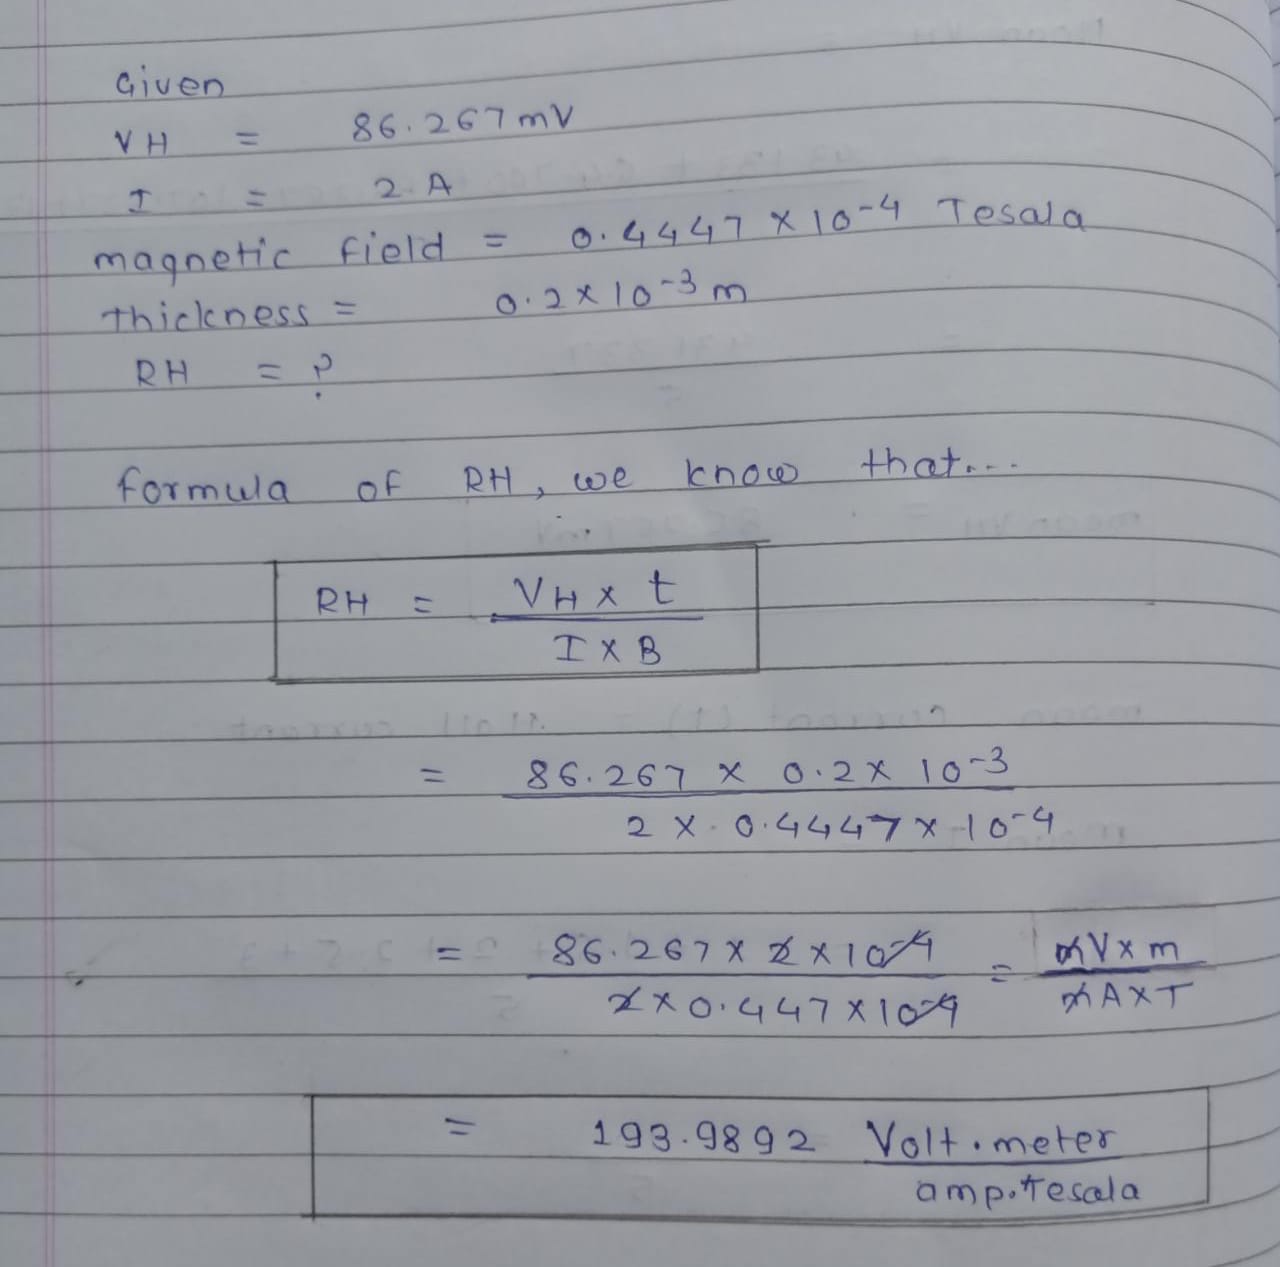 Given
VH = 86.267 mV
I = 2 A
magnetic field = 0.4447 × 10-4 Tesala
thickness = 0.2 × 10-3 m
RH = ?
formula of RH, we know that...
RH = VH × t
I × B
= 86.267 × 0.2 × 10-3
2 × 0.4447 × 10-4
= 86.267 × 2 × 10-4 = mV × m
2 × 0.447 × 10-4 mA × T
= 193.9892 Volt . meter
amp. Tesala